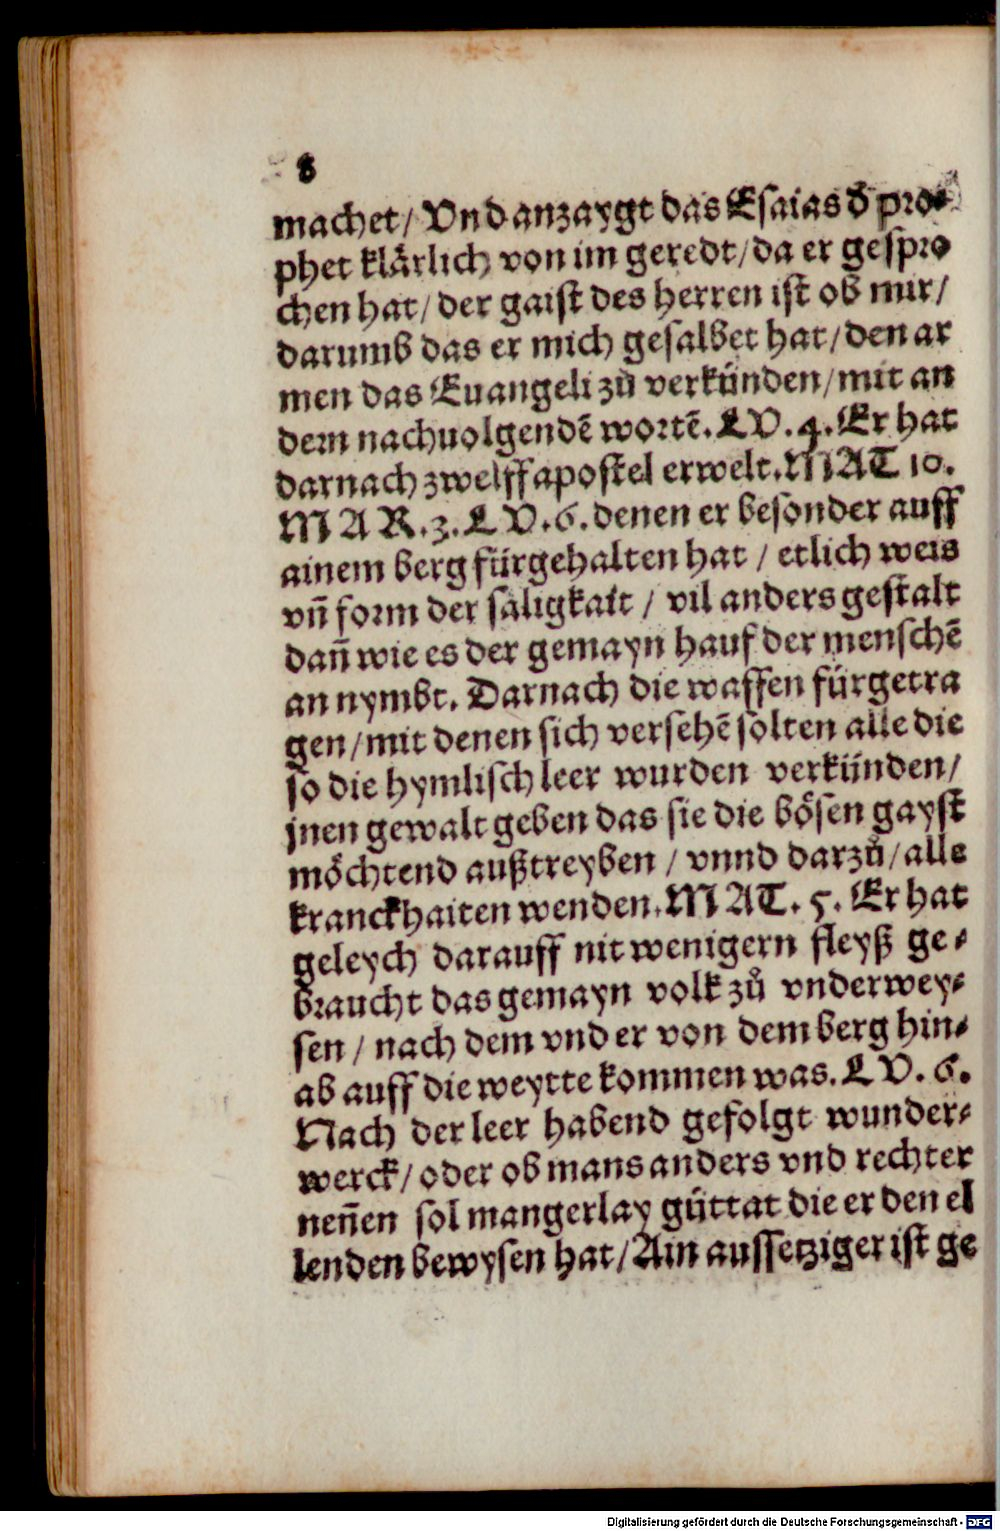 8
machet/ Vnd anzaygt das Esaias d̕ pro⸗
phet klärlich von im geredt/ da er gespro
chen hat/ der gaist des herren ist ob mir/
darumb das er mich gesalbet hat/ den ar
men das Euangeli zů verkünden/ mit an
dern nachuolgendē wortē. LV. 4. Er hat
darnach zwelff apostel erwelt. MAT 10.
MAR. 3. LV. 6. denen er besonder auff
ainem berg fürgehalten hat / etlich weis
vn̄ form der säligkait / vil anders gestalt
dan̄ wie es der gemayn hauf der menschē
an nymbt. Darnach die waffen fürgetra
gen/ mit denen sich versehē solten alle die
so die hymlisch leer wurden verkünden/
jnen gewalt geben das sie die bösen gayst
möchtend außtreyben / vnnd darzů/ alle
kranckhaiten wenden. MAT. 5. Er hat
geleych darauff nit wenigern fleyß ge⸗
braucht das gemayn volk zů vnderwey⸗
sen / nach dem vnd er von dem berg hin⸗
ab auff die weytte kommen was. LV. 6.
Nach der leer habend gefolgt wunder⸗
werck/ oder ob mans anders vnd rechter
nen̄en sol mangerlay güttat die er den el
lenden bewysen hat/ Ain aussetziger ist ge
Digitalisierung gefördert durch die Deutsche Forschungsgemeinschaft - DFG